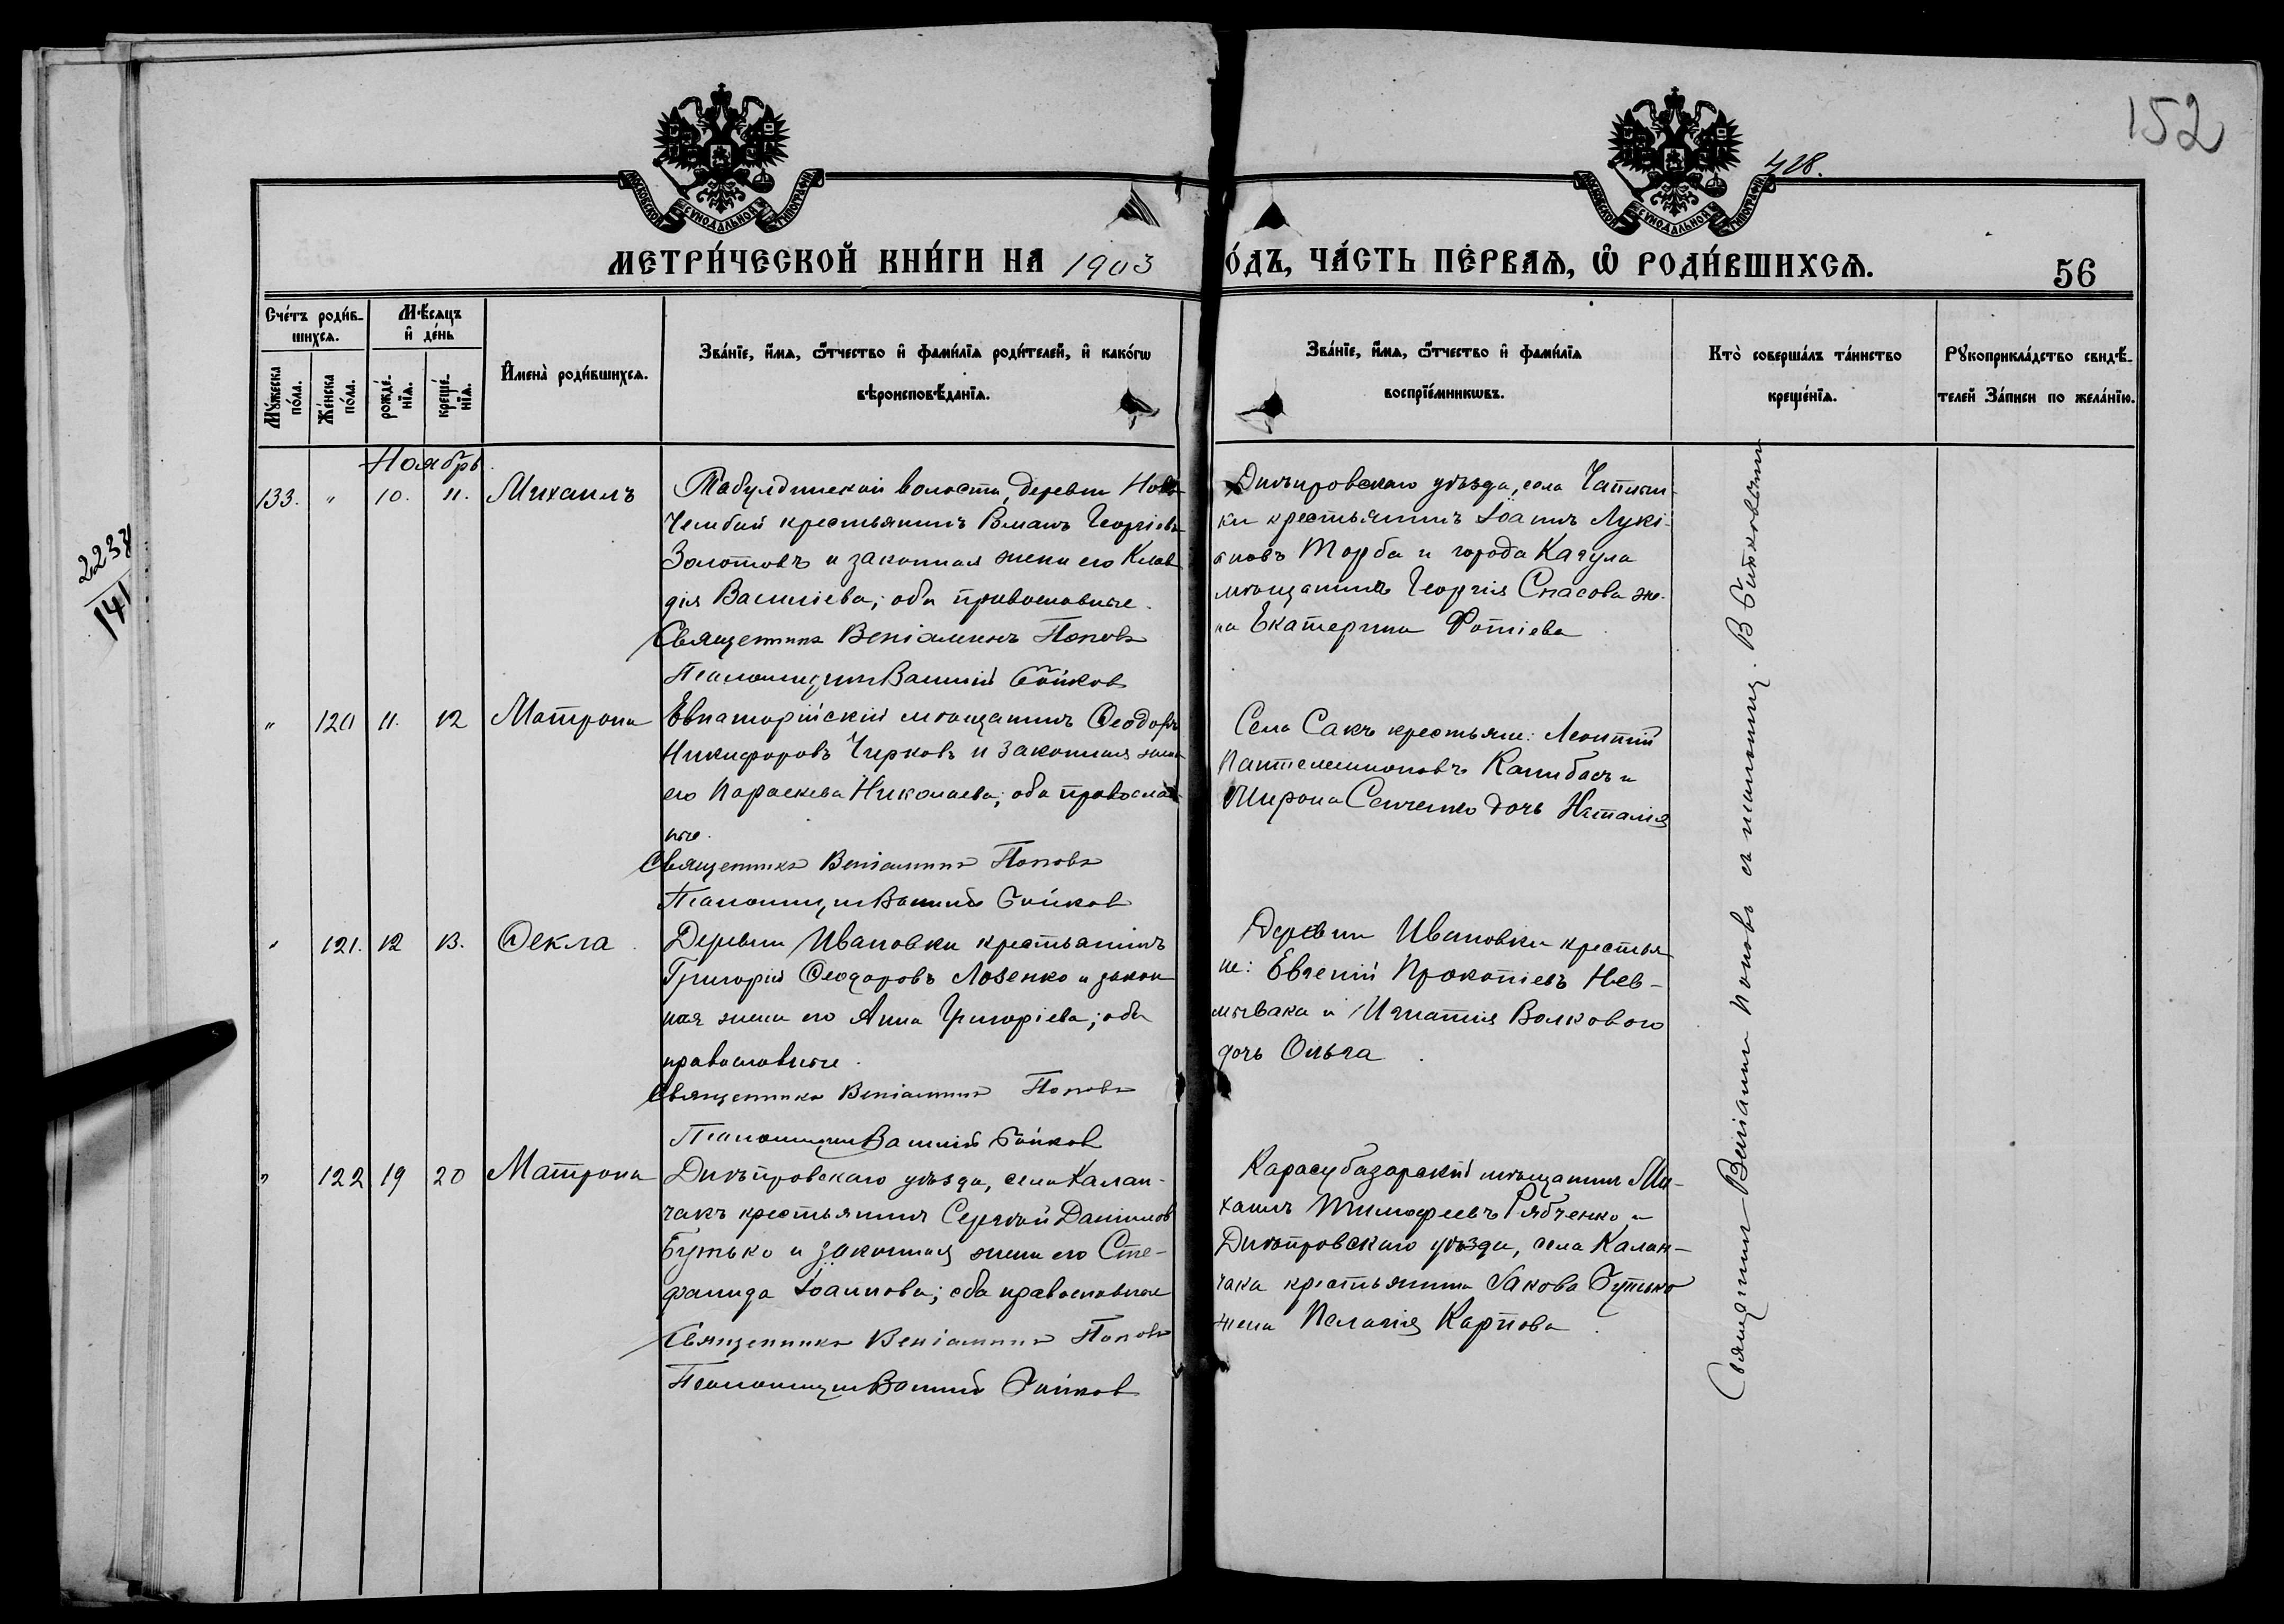 152
428.
МОСКОВСКОЙ СѴНОДАЛЬНОЙ ТИПОГРАФІИ
МОСКОВСКОЙ СѴНОДАЛЬНОЙ ТИПОГРАФІИ
МЕТРИ́ЧЕСКОЙ КНИ́ГИ НА 1903
О́ДЪ, ЧА́СТЬ ПЕ́РВАѦ, Ѡ҆ РОДИ́ВШИХСѦ.
56
Сче́тъ роди́в-
шихсѧ.
Мѣ́сѧцъ
и҆ де́нь
Мꙋ́жеска по́ла.
Же́нска по́ла.
рожде́-нїѧ.
креще́-нїѧ.
И҆мена̀ роди́вшихсѧ.
Зва́нїе, и҆́мѧ, ѻ҆́тчество и҆ фами́лїѧ роди́телей, и҆ како́гѡ
вѣроисповѣ́данїѧ.
Зва́нїе, и҆́мѧ, ѻ҆́тчество и҆ фами́лїѧ
воспрїе́мникѡвъ.
Кто̀ соверша́лъ та́инство
креще́нїѧ.
Рꙋкоприкла́дство свидѣ́-
телей За́писи по жела́нїю.
2238
141
Ноябрь.
133. " 10. 11. Михаилъ
Табулдинской волости, деревни Ново
Чембай крестьянинъ Романъ Георгіевъ
Золотовъ и законная жена его Клав
дія Василіева; оба православные.
Священникъ Веніаминъ Поповъ
Псаломщик Василій Бойков
Днѣпровскаго уѣзда, села Чаплин-
ки крестьянинъ Іоаннъ Лукі-
яновъ Торба и города Кагула
мѣщанина Георгія Спасова же-
на Екатерина Фотіева
" 120 11. 12 Матрона
Евпаторійскій мѣщанинъ Ѳеодоръ
Никифоровъ Чирковъ и законная жена
его Параскева Николаева; оба православ
ные.
Священникъ Веніаминъ Поповъ
Псаломщик Василій Бойков
Села Сакъ крестьяне: Леонтій
Пантелеимоновъ Канибасъ и
Мирона Сенченко дочь Наталія
" 121. 12 13. Ѳекла.
Деревни Ивановки крестьянинъ
Григорій Ѳеодоровъ Лозенко и закон
ная жена его Анна Григоріева; оба
православные.
Священникъ Веніаминъ Поповъ
Псаломщик Василій Бойков
Деревни Ивановки крестья
не: Евгеній Прокопіевъ Нев-
мывака и Игнатія Волкового
дочь Ольга.
" 122 19 20 Матрона
Днѣпровскаго уѣзда, села Калан-
чакъ крестьянинъ Сергѣй Даниловъ
Бутько и законная жена его Сте-
фанида Іоаннова; оба православные
Священникъ Веніаминъ Поповъ
Псаломщик Василій Бойков
Карасубазарскій мѣщанинъ Ми-
хаилъ Тимофеевъ Рябченко и
Днѣпровскаго уѣзда, села Калан-
чака крестьянина Іакова Бутько
жена Пелагія Карпова.
Священникъ Веніаминъ Поповъ съ псаломщ. В. Бойковымъ